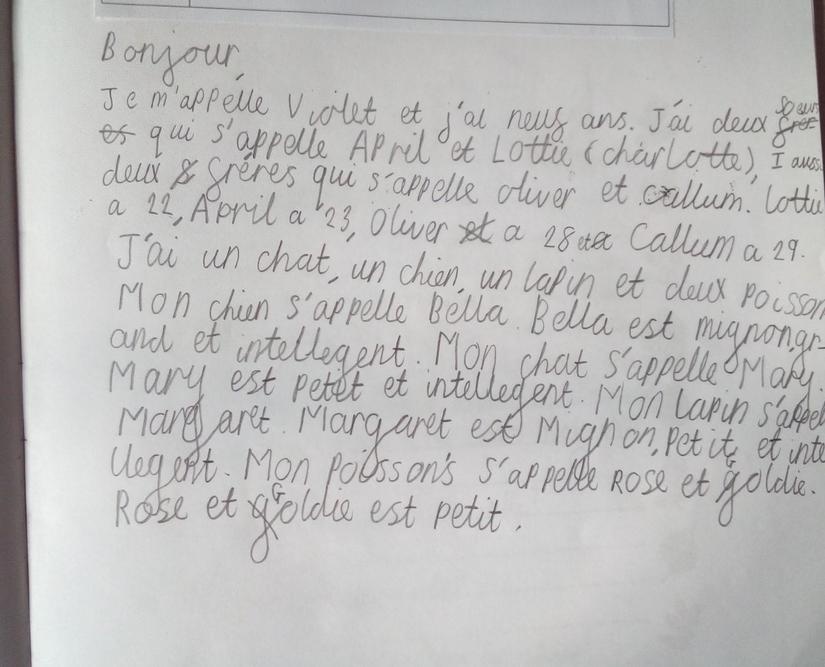 Bonjour,
Je m'appélle Violet et j'ai neuf ans. J'ai deux soeurs
qui s'appelle April et Lottie (charlotte), I auss
deux fréres qui s'appelle oliver et callum. Lottie
a 22, April a 23, Oliver a 28 et Callum a 29.
J'ai un chat, un chien, un lapin et deux poisson
Mon chien s'appelle Bella. Bella est mignon, gr-
and et intellegent. Mon chat s'appelle Mary.
Mary est petet et intellegent. Mon Lapin s'appel
Margaret. Margaret est Mignon, petit, et inte
llegent. Mon poisson's s'appelle Rose et Goldie.
Rose et Goldie est petit.